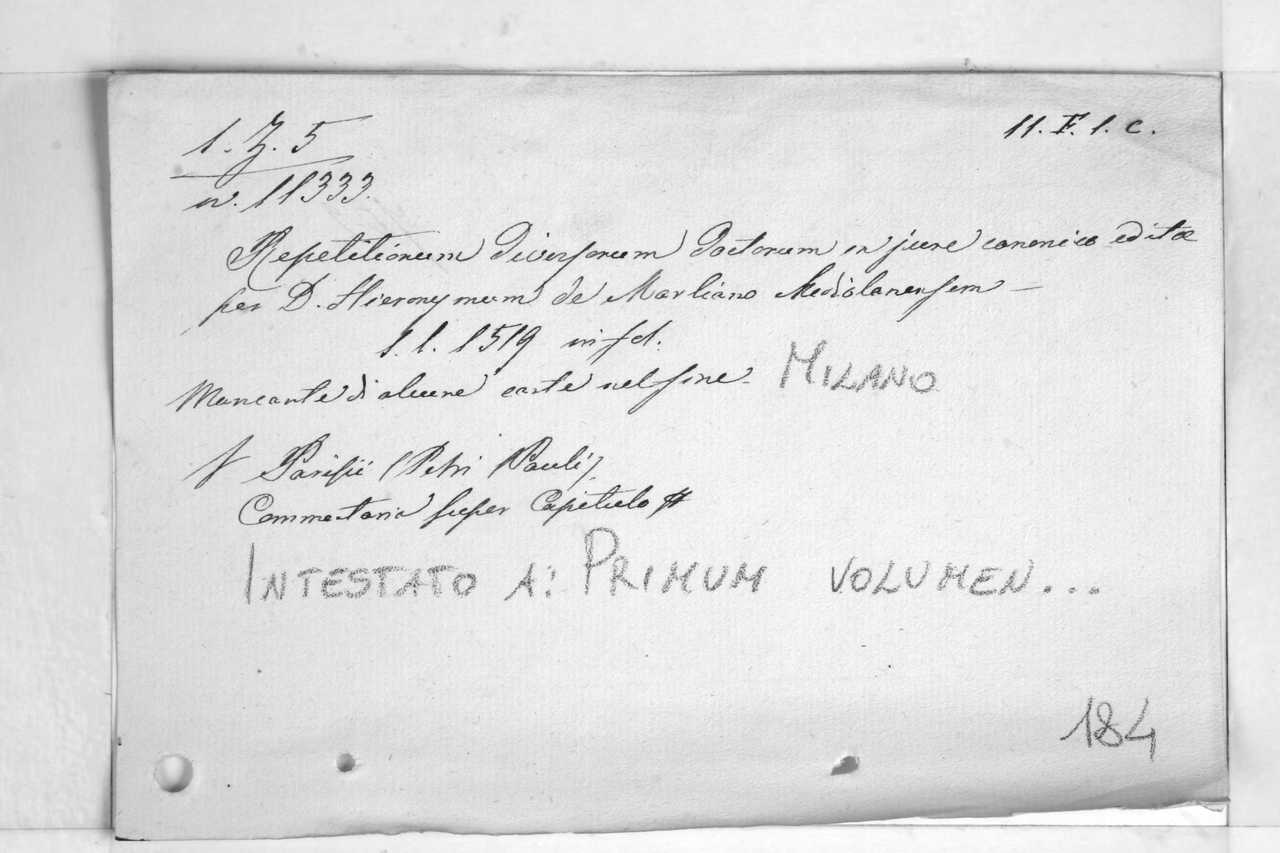 1. Z. 5
11. F. 1. c.
n. 11333.
Repetitionum diversorum doctorum in jure canonico editæ
per D. Hieronymum de Marliano Mediolanensem –
s. l. 1519 in fol.
Mancante di alcune carte nel fine. MILANO
V Parisii (Petri Pauli)
Commentaria super Capitulo #
INTESTATO A: PRIMUM VOLUMEN...
184